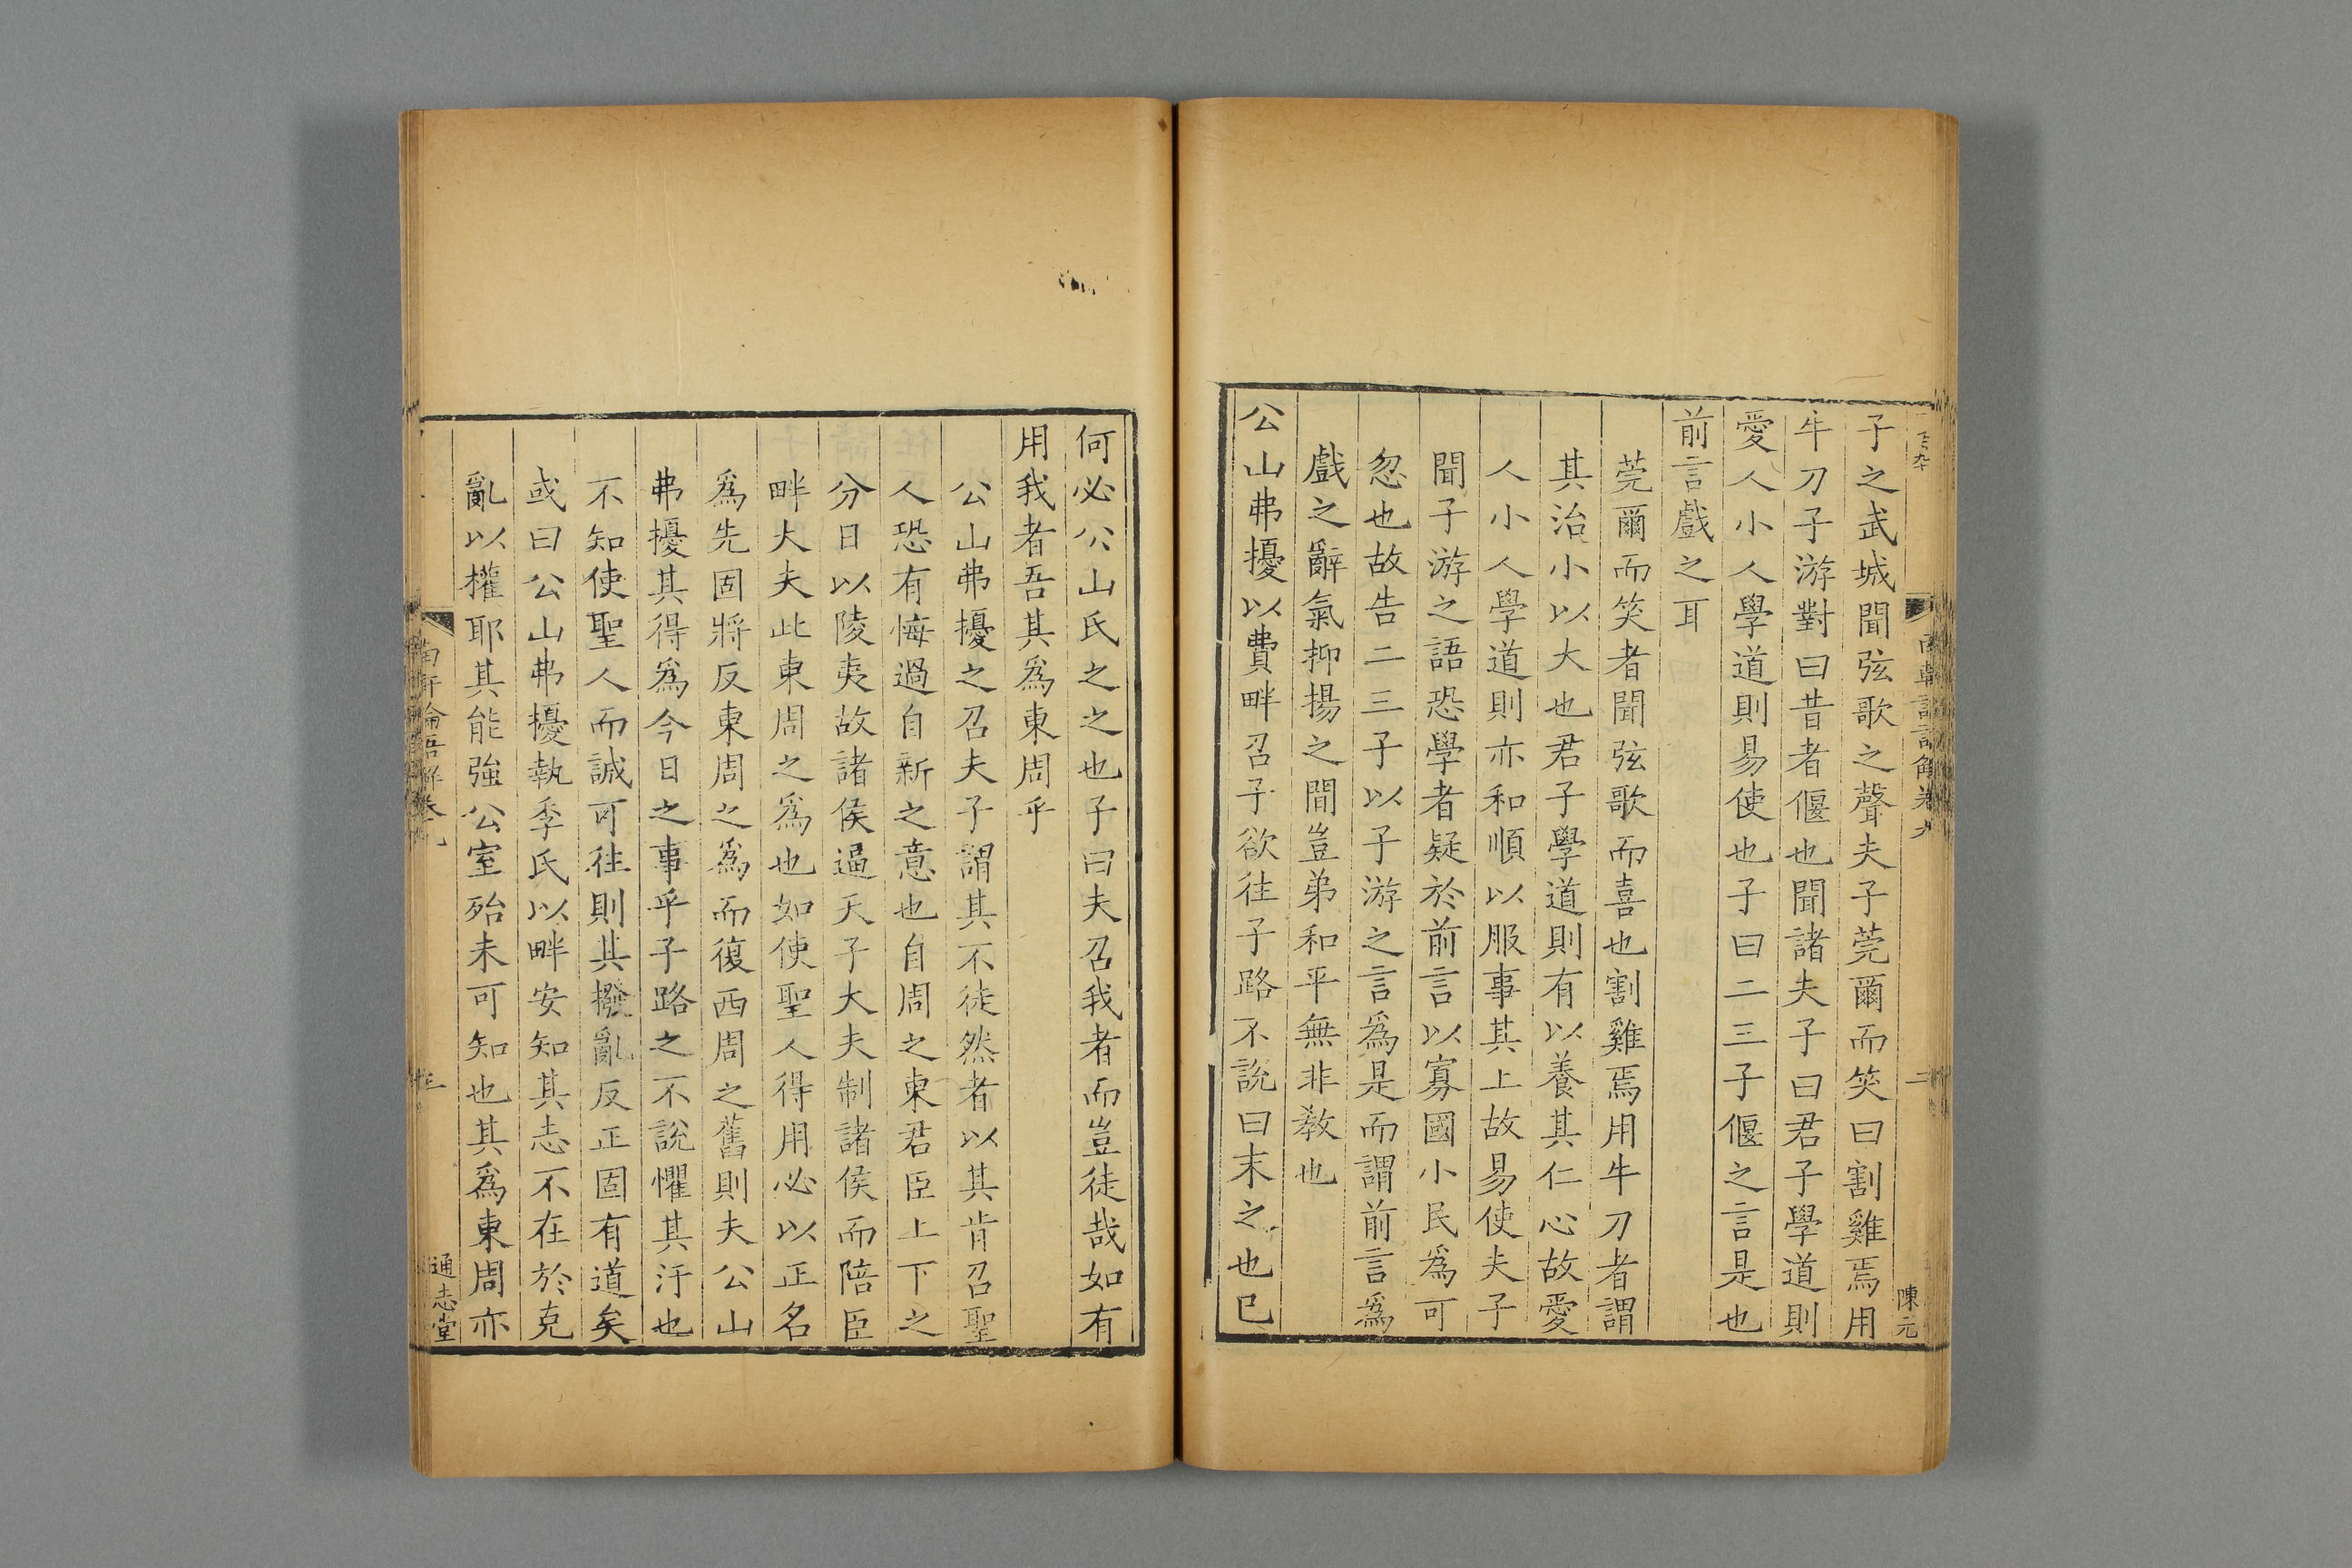 子之武城聞弦歌之聲夫子莞爾而笑曰割雞焉用
牛刀子游對曰昔者偃也聞諸夫子曰君子學道則
愛人小人學道則易使也子曰二三子偃之言是也
前言戲之耳
莞爾而笑者聞弦歌而喜也割雞焉用牛刀者謂
其治小以大也君子學道則有以養其仁心故愛
人小人學道則亦和順以服事其上故易使夫子
聞子游之語恐學者疑於前言以寡國小民爲可
忽也故告二三子以子游之言爲是而謂前言爲
戲之辭氣抑揚之間豈弟和平無非教也
公山弗擾以費畔召子欲往子路不說曰末之也已
陳元
何必公山氏之之也子曰夫召我者而豈徒哉如有
用我者吾其爲東周乎
公山弗擾之召夫子謂其不徒然者以其肯召聖
人恐有悔過自新之意也自周之東君臣上下之
分日以陵夷故諸侯逼天子大夫制諸侯而陪臣
畔大夫此東周之爲也如使聖人得用必以正名
爲先固將反東周之爲而復西周之舊則夫公山
弗擾其得爲今日之事乎子路之不說懼其汙也
不知使聖人而誠可往則其撥亂反正固有道矣
或曰公山弗擾執季氏以畔安知其志不在於克
亂以權耶其能強公室殆未可知也其爲東周亦
南軒論語解卷九
通志堂